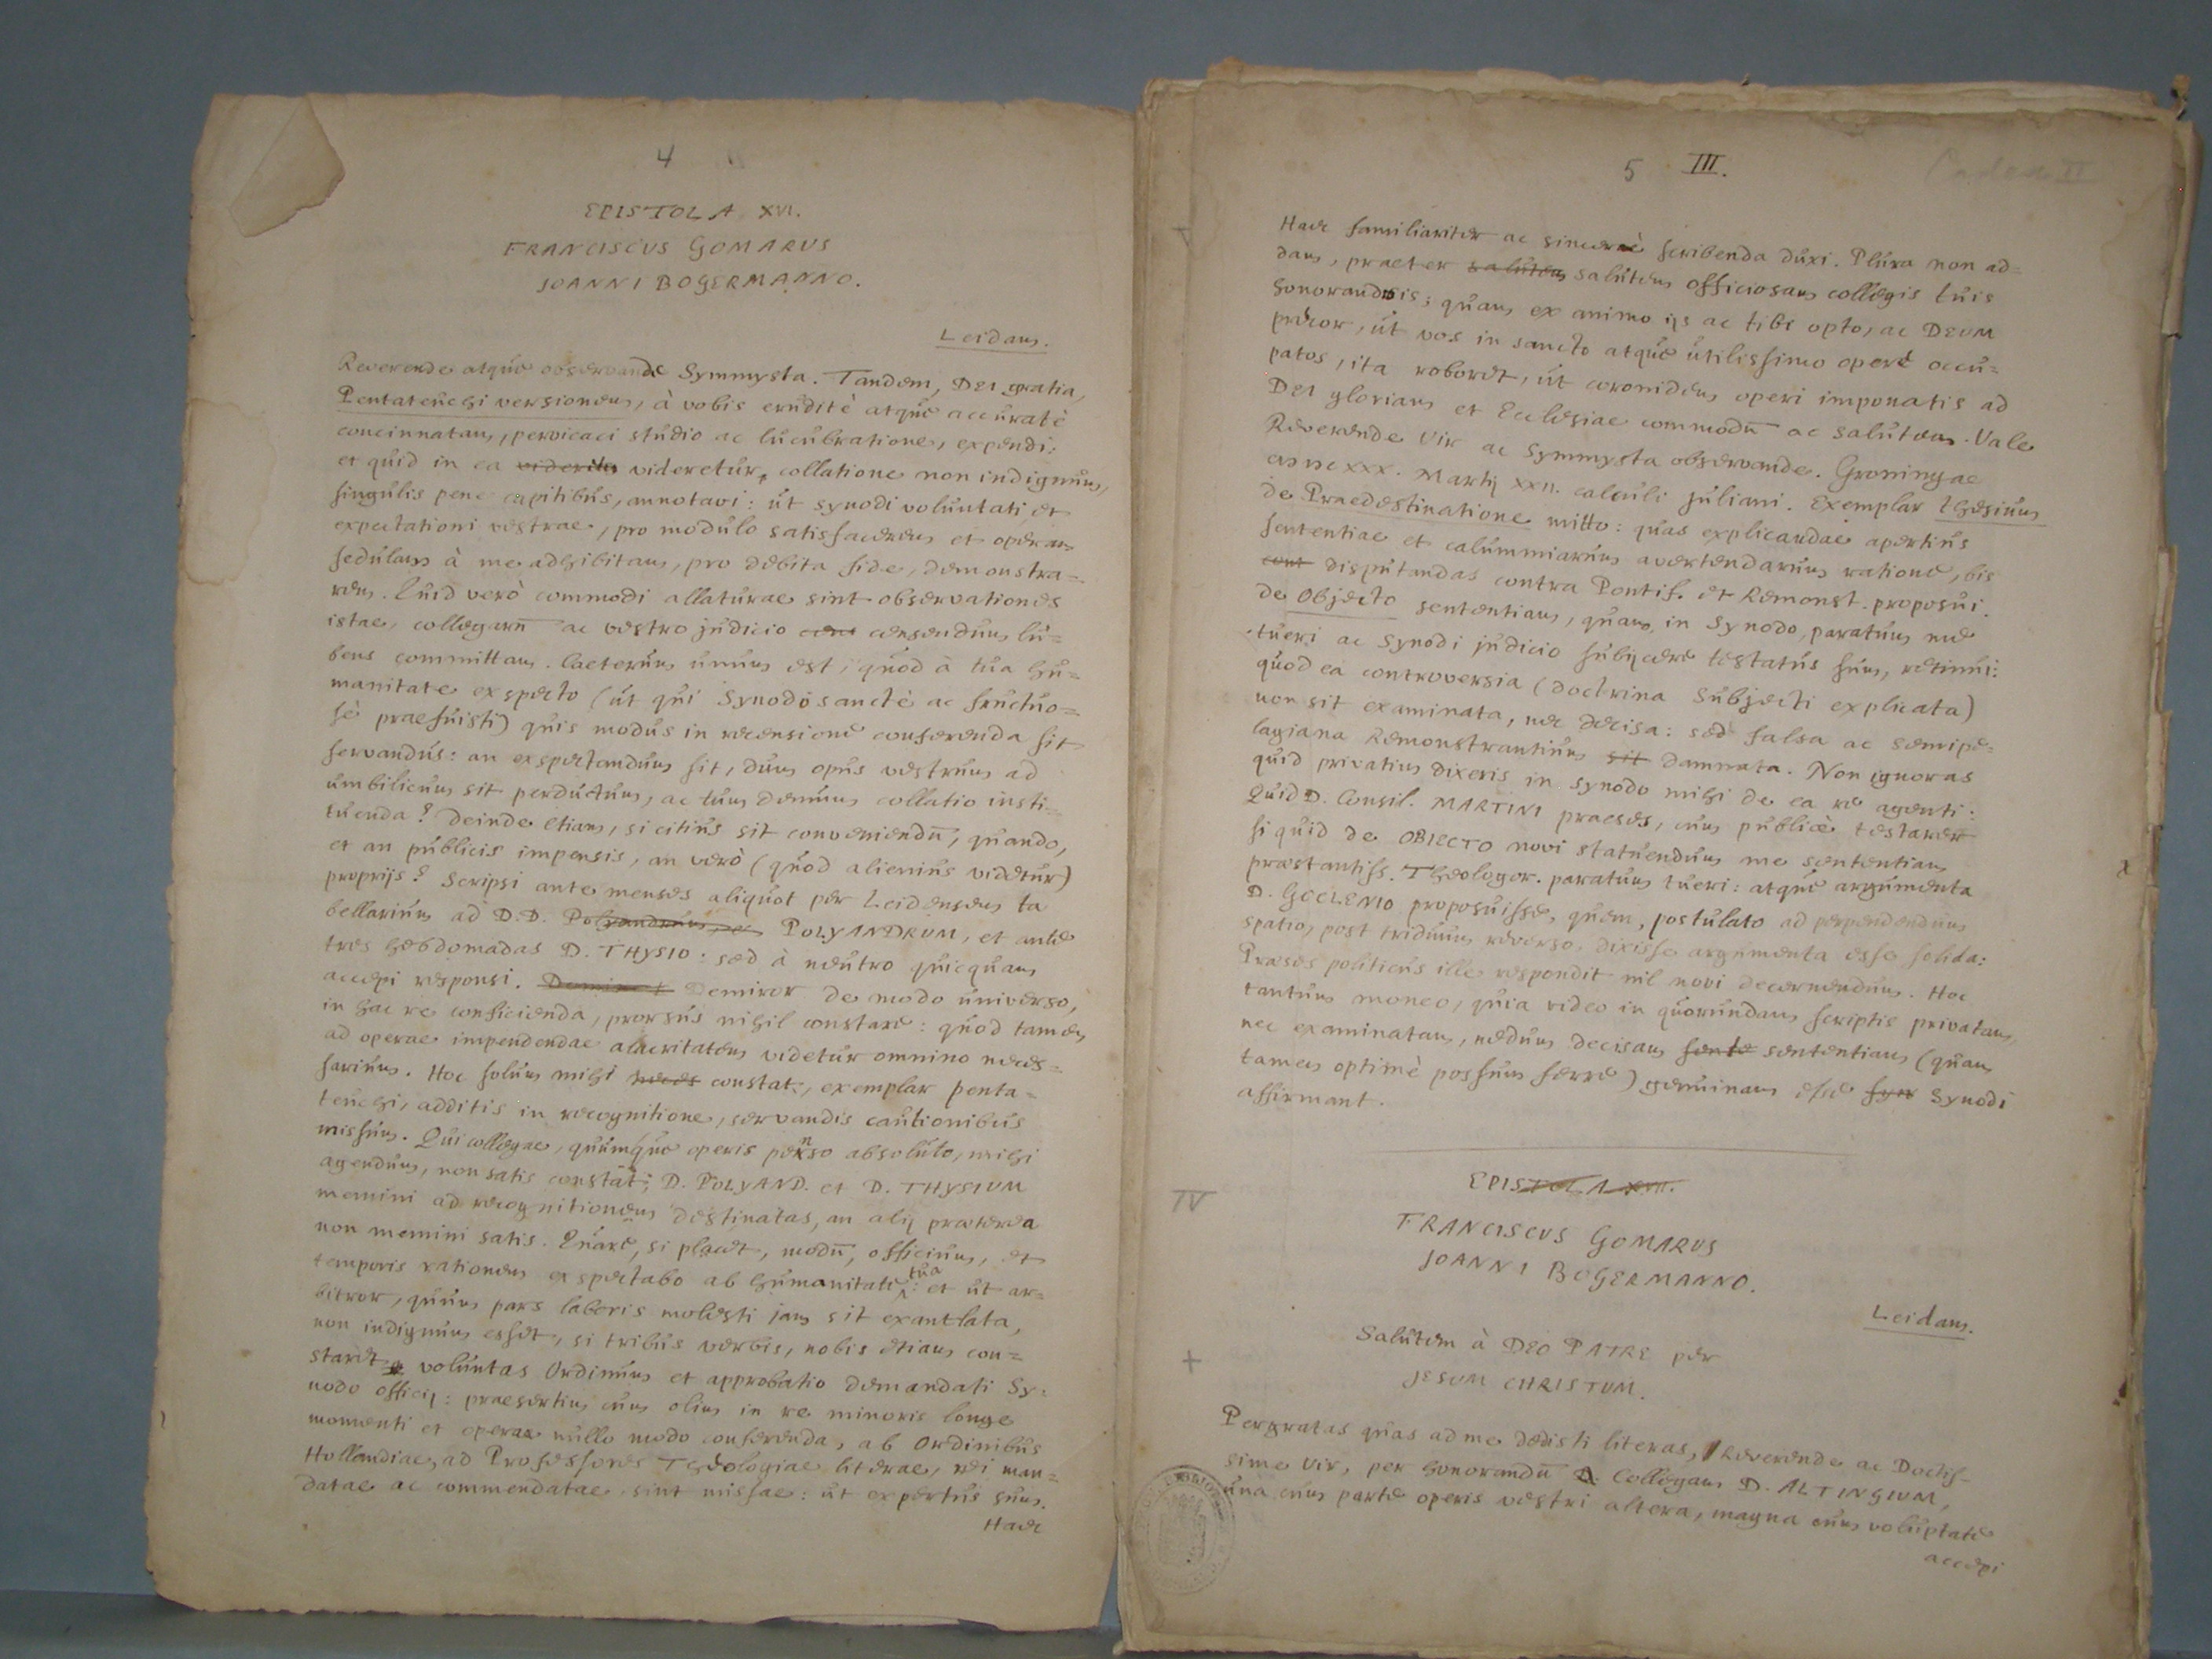 4
EPISTOLA XVI.
FRANCISCUS GOMARUS
JOANNI BOGERMANNO.
Leidam.
Reverende atque observande Symmysta. Tandem, DEI gratia,
Pentateuchi versionem, à vobis eruditè atque accuratè
concinnatam, pervicaci studio ac lucubratione, expendi:
et quid in ea videritu videretur, collatione non indignum,
singulis pene capitibus, annotavi: ut synodi voluntati, et
expectationi vestrae, pro modulo satisfacerem et operam
sedulam à me adhibitam, pro debita fide, demonstra=
rem. Quid verò commodi allaturae sint observationes
istae, collegarū ac vestro judicio cens censendum lu=
bens committam. Caeterum unum est, quod à tua hu=
manitate exspecto (ut qui Synodo sanctè ac fructuo=
sè praefuisti) quis modus in recensione conferenda sit
servandus: an exspectandum sit, dum opus vestrum ad
umbilicum sit perductum, ac tum demum collatio insti=
tuenda? Deinde etiam, si citius sit conveniendū, quando,
et an publicis impensis, an verò (quod alienius videtur)
proprijs? Scripsi ante menses aliquot per Leidensem ta
bellarium ad D.D. Polyandrum, et POLYANDRUM, et ante
tres hebdomadas D. THYSIO: sed à neutro quicquam
accepi responsi. Demiror Demiror de modo universo,
in hac re conficienda, prorsus nihil constare: quod tamen
ad operae impendendae alacritatem videtur omnino neces=
sarium. Hoc solum mihi neces constat, exemplar penta=
teuchi, additis in recognitione, servandis cautionibus
missum. Qui collegae, quumque operis penso absoluto, mihi
agendum, non satis constat; D. POLYAND. et D. THYSIUM
memini ad recognitionem destinatas, an alij praeterea
non memini satis. Quare, si placet, modū, officium, et
temporis rationem exspectabo ab humanitate tua: et ut ar=
bitror, quum pars laboris molesti jam sit exantlata,
non indignum esset, si tribus verbis, nobis etiam con=
staret voluntas Ordinum et approbatio demandati Sy=
nodo officij: praesertim cum olim in re minoris longe
momenti et operae nullo modo conferenda, ab Ordinibus
Hollandiae, ad Professores Theologiae literae, rei man=
datae ac commendatae sint missae: ut expertus sum.
Haec
5 III.
Haec familiariter ac sincerè scribenda duxi. Plura non ad=
dam, praeter salutem salutem officiosam collegis tuis
honorandis; quam ex animo ijs ac tibi opto, ac DEUM
precor, ut vos in sancto atque utilissimo opere occu=
patos, ita roboret, ut coronidem operi imponatis ad
DEI gloriam et Ecclesiae commodū ac salutem. Vale
Reverende Vir ac Symmysta observande. Groningae
XXX. Martij XXII. calculi juliani. Exemplar thesium
de Praedestinatione mitto: quas explicandae apertius
sententiae et calumniarum avertendarum ratione, bis
cont disputandas contra Pontif. et Remonst. proposui.
De Objecto sententiam, quam in Synodo, paratum me
tueri ac Synodi judicio subijcere testatus sum, retinui:
quod ea controversia (doctrina Subjecti explicata)
non sit examinata, nec decisa: sed falsa ac semipe=
lagiana Remonstrantium sit damnata. Non ignoras
quid privatim dixeris in synodo mihi de ea re agenti:
Quid D. Consil. MARTINI praeses, cum publicè testarer
si quid de OBIECTO novi statuendum me sententiam
praestantiss. Theologor. paratum tueri: atque argumenta
D. GOCLENIO proposuisse, quem, postulato ad perpendendum
spatio, post triduum reverso, dixisse argumenta esse solida:
Praeses politicus ille respondit nil novi decernendum. Hoc
tantum moneo, quia video in quorundam scriptis privatam
nec examinatam, nedum decisam sente sententiam (quam
tamen optimè possum ferre) genuinam esse syn Synodi
affirmant.
IV
EPISTOLA XVII.
FRANCISCUS GOMARUS
JOANNI BOGERMANNO.
Leidam.
Salutem à DEO PATRE per
JESUM CHRISTUM.
Pergratas quas ad me dedisti literas, Reverende ac Doctis-
sime Vir, per honorandū D. Collegam D. ALTINGIUM,
una cum parte operis vestri altera, magna cum voluptate
accepi